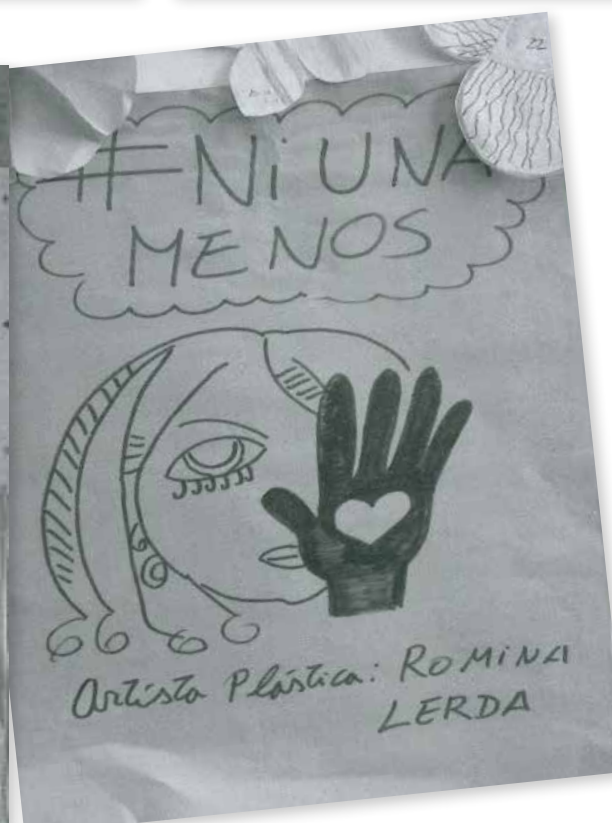 #Ni UNA
MENOS
Artista Plástica: ROMiNA
LERDA
22